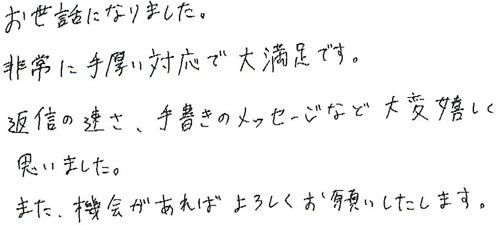 お世話になりました。
非常に手厚い対応で大満足です。
返信の速さ、手書きのメッセージなど大変嬉しく
思いました。
また、機会があればよろしくお願いしたします。